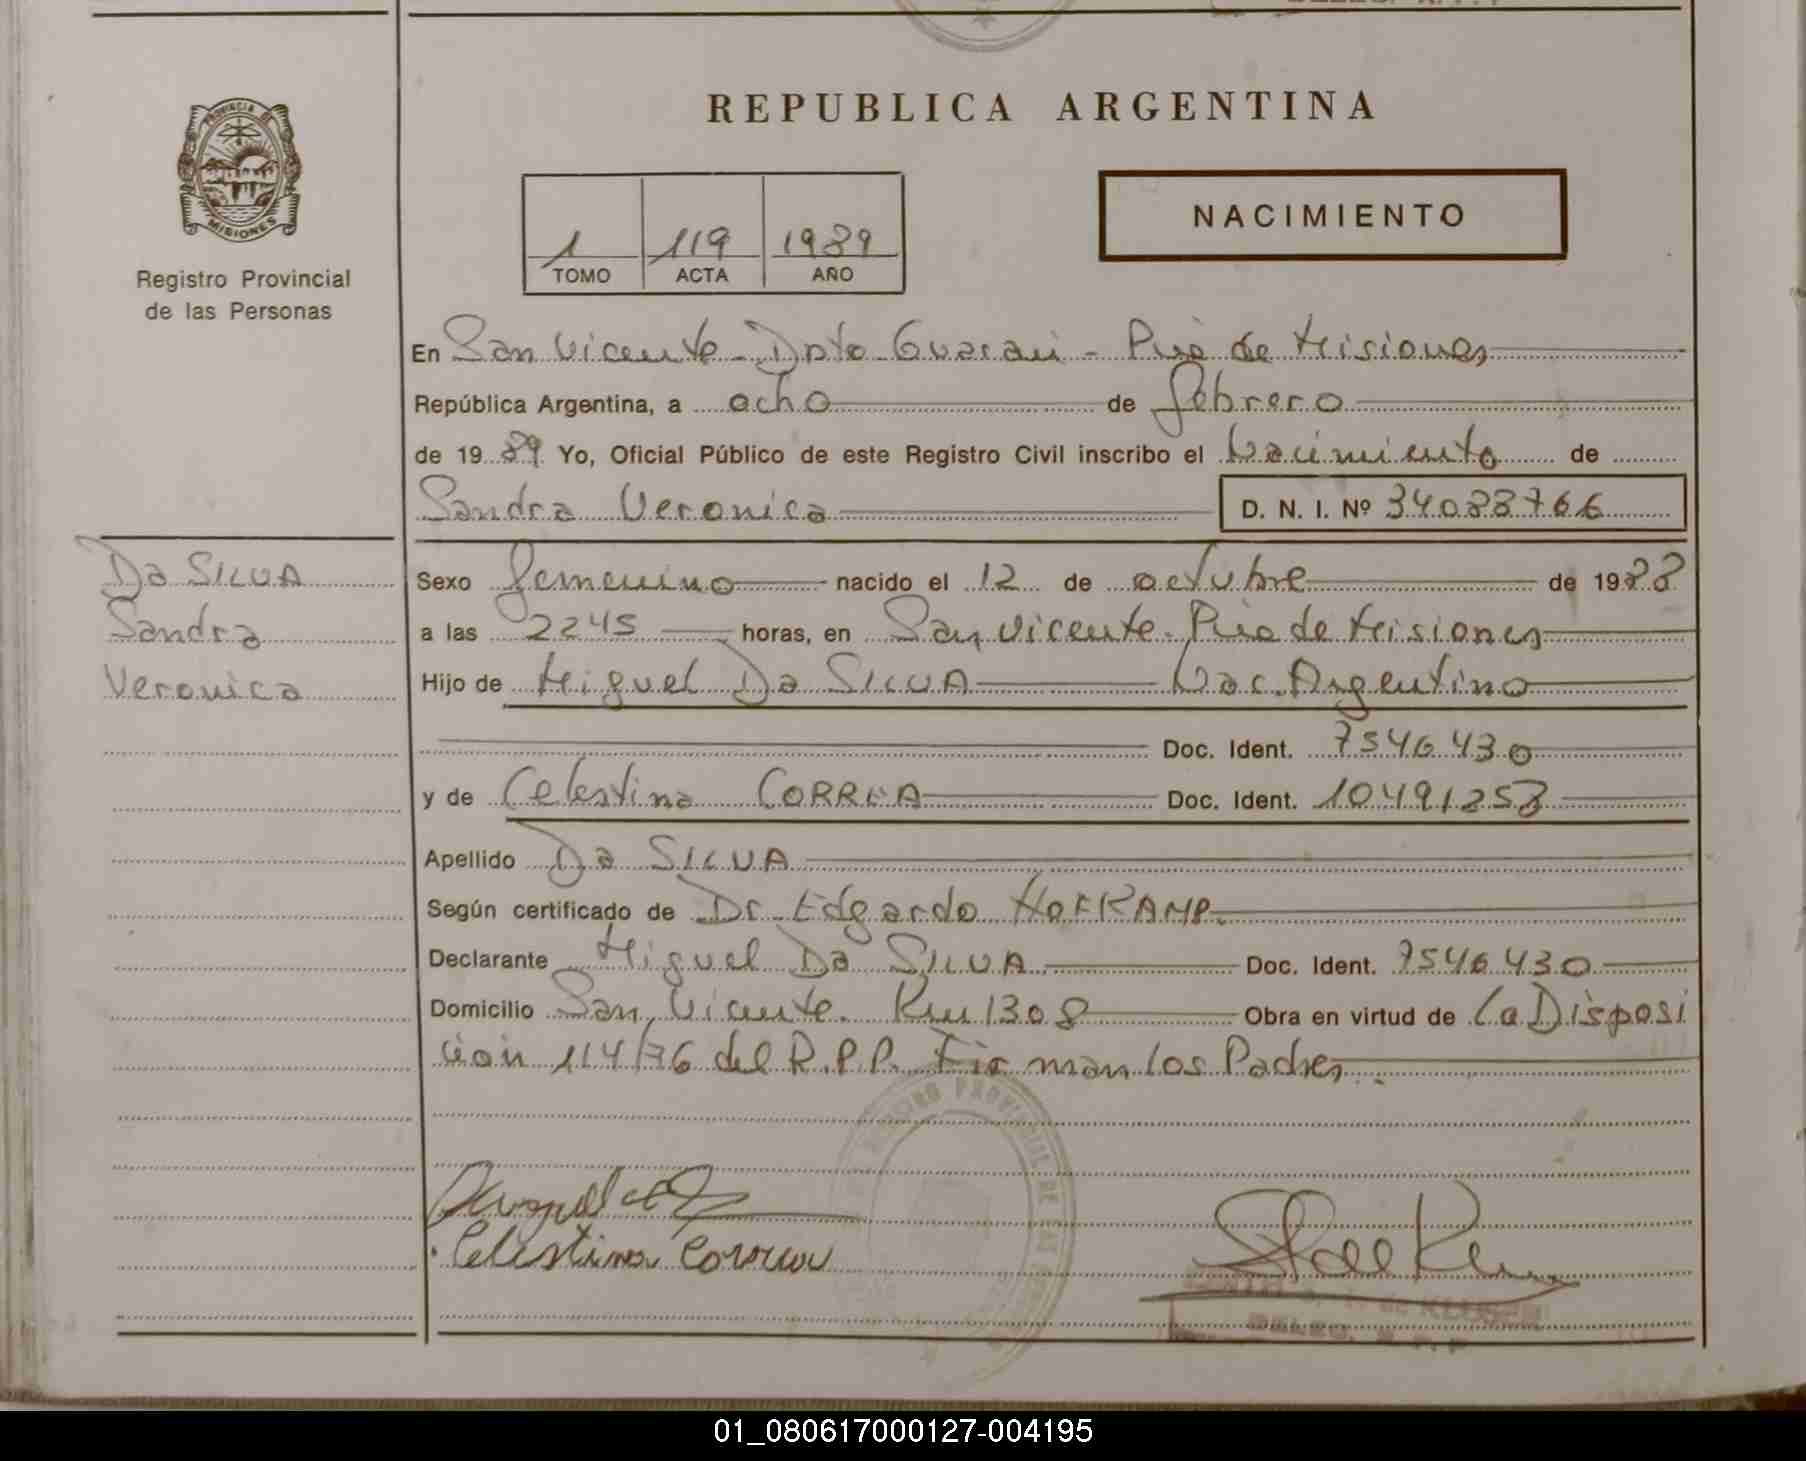 REPUBLICA ARGENTINA
PROVINCIA DE MISIONES
Registro Provincial
de las Personas
1 119 1989
TOMO ACTA AÑO
NACIMIENTO
En San Vicente - Dpto Guarani - Pcia de Misiones
República Argentina, a ocho de febrero
de 1989 Yo, Oficial Público de este Registro Civil inscribo el Nacimiento de
Sandra Veronica D. N. I. Nº 34088766
Da SILVA
Sandra
Veronica
Sexo femenino nacido el 12 de octubre de 1988
a las 2245 horas, en San Vicente. Pcia de Misiones
Hijo de Miguel Da SILVA Nac. Argentino
Doc. Ident. 7546430
y de Celestina CORREA Doc. Ident. 10491253
Apellido Da SILVA
Según certificado de Dr Edgardo HOFKAMP.
Declarante Miguel Da SILVA Doc. Ident. 7546430
Domicilio San Vicente. Km 1308 Obra en virtud de La Disposi
cion 114/76 del R.P.P. Firman los Padres.
Celestina Correa
REGISTRO PROVINCIAL DE LAS
de KLUGEN
DELEG. R.P.P
01_080617000127-004195